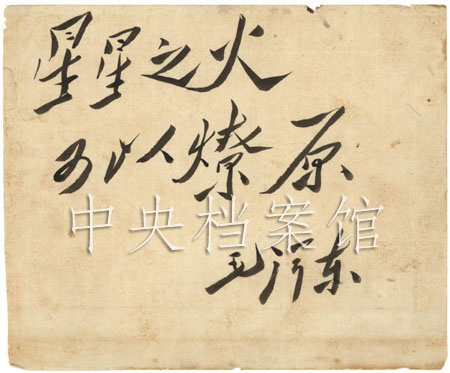 星星之火
可以燎原
中央档案馆
毛泽东